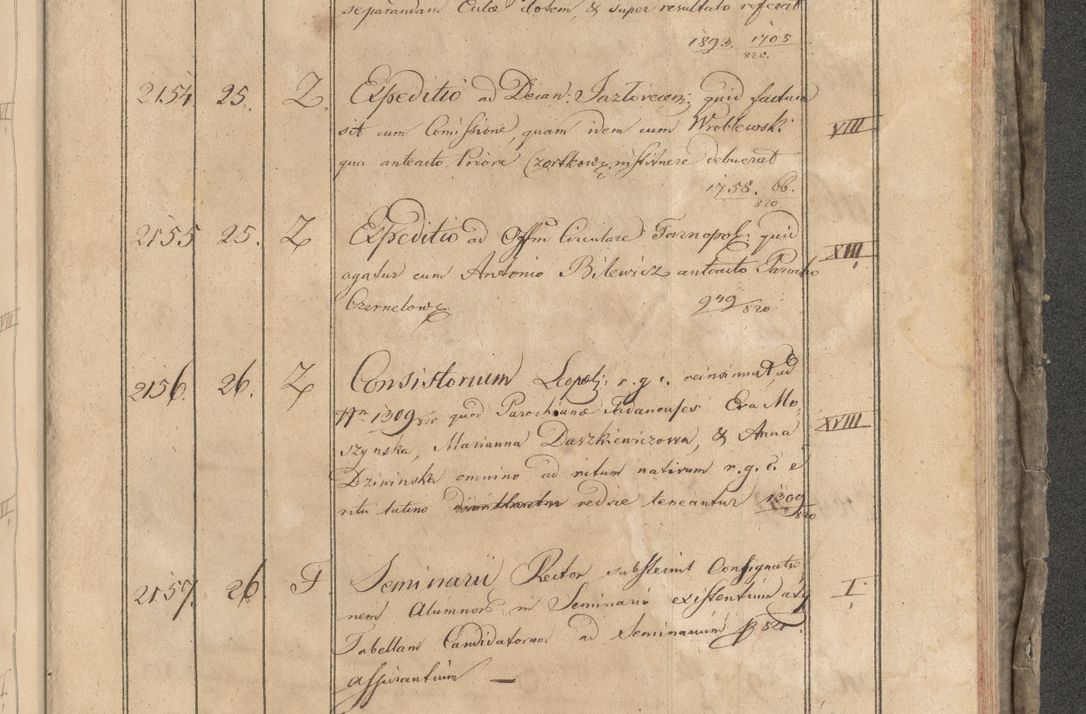 separandam Culae dotem, & super resultato referat
1893. 1705
820.
2154 25. Z. Expeditio ad Decan: Jazlovecens, quid factum
sit cum Comissione, quam idem cum Wroblewski VIII
qua anteacto Priore Czortkow: instituere debuerat
1758. 66.
820
2155 25. Z Expeditio ad Offm Circulare Tarnopol: quid
agatur cum Antonio Bilewicz anteacto Parocho XIII
Czernelow:
949/820
2156. 26. Z Consistorium Leopol: r. g. c. reinsinuat, ad
Nrm 1309/820 quod Parochianae Eva Mo-
szynska, Marianna Daszkiewiczowa, & Anna XVIII
Dziwinska omnino ad ritum nativum r. g. c. e
ritu latino redire teneantur 1309/820
2157. 26 F Seminarii Rector substernit Consignatio
nem Alumnor in Seminario existentium atq I.
Tabellam Candidatorum ad Seminarium 820.
assirantium —